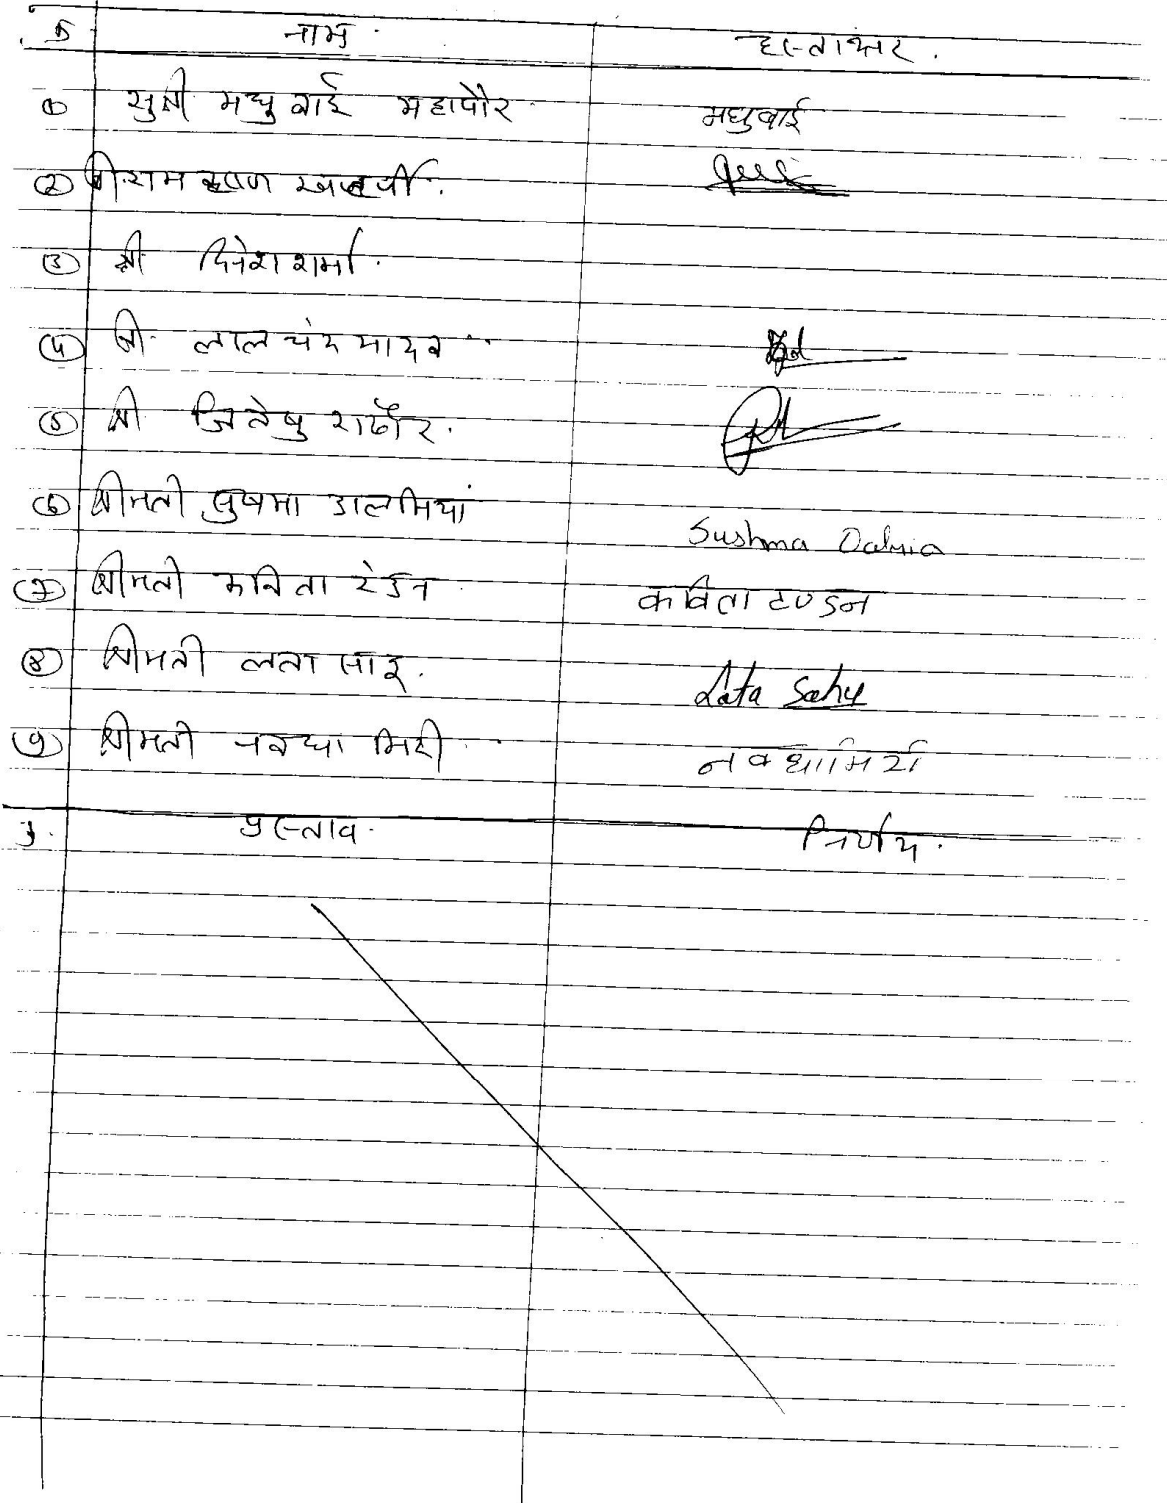 क्र नाम हस्ताक्षर.
① सुश्री मधु बाई महापौर. मधुबाई
② श्री राम कृष्ण
③ श्री दिनेश शर्मा.
④ श्री लाल चंद यादव
⑤ श्री जितेषु राठौर.
⑥ श्रीमती सुषमा डालमियां Sushma Dalmia
⑦ श्रीमती कविता टंडन कविता टण्डन
⑧ श्रीमती लता साहू. Lata Sahu
⑨ श्रीमती नवधा मिरी नवधा मिरी
क्र. प्रस्ताव. निर्णय.